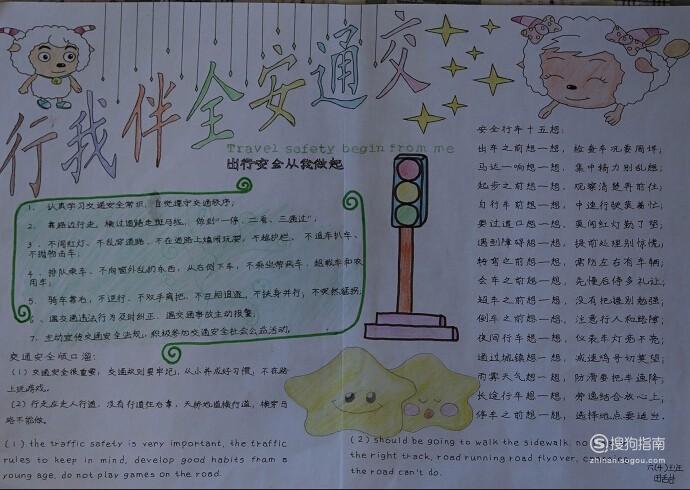 交通安全伴我行
Travel safety begin from me
出行安全从我做起
1、认真学习交通安全常识，自觉遵守交通秩序；
2、靠路边行走，横过道路走斑马线，做到"一停、二看、三通过"；
3、不闯红灯、不乱穿道路、不在道路上嬉闹玩耍，不越护栏、不追车扒车、
不抛物击车；
4、排队乘车、不向窗外乱扔东西，从右侧下车，不乘坐带病车、超载车和农
用车；
5、骑车靠右，不逆行、不双手离把，不互相追逐、不扶身并行；不突然猛拐；
6、遇交通违法行为及时纠正、遇交通事故主动报警；
7、主动宣传交通安全法规，积极参加交通安全社会公益活动。
交通安全顺口溜：
(1)交通安全很重要，交通规则要牢记，从小养成好习惯，不在路
上玩游戏。
(2)行走应走人行道，没有行道往右靠，天桥地道横行道，横穿马
路不能做。
(1) the traffic safety is very important, the traffic
rules to keep in mind, develop good habits fram a
young age, do not play games on the road.
(2) should be going to walk the sidewalk, no
the right track, road running road flyover,
the road can't do.
安全行车十五想：
出车之前想一想，检查车况要周详；
马达一响想一想，集中精力别乱想；
起步之前想一想，观察清楚再前往；
自行车前想一想，中速行驶莫着忙；
要过道口想一想，莫闯红灯勤了望；
遇到障碍想一想，提前处理别惊慌；
转弯之前想一想，需防左右有车辆；
会车之前想一想，先慢后停多礼让；
超车之前想一想，没有把握别勉强；
倒车之前想一想，注意行人和路障；
夜间行车想一想，仪表车灯亮不亮；
通过城镇想一想，减速鸣号切莫望；
雨雾天气想一想，防滑要把车速降；
长途行车想一想，劳逸结合放心上；
停车之前想一想，选择地点要适当．
搜狗指南
zhinan.sogou.com